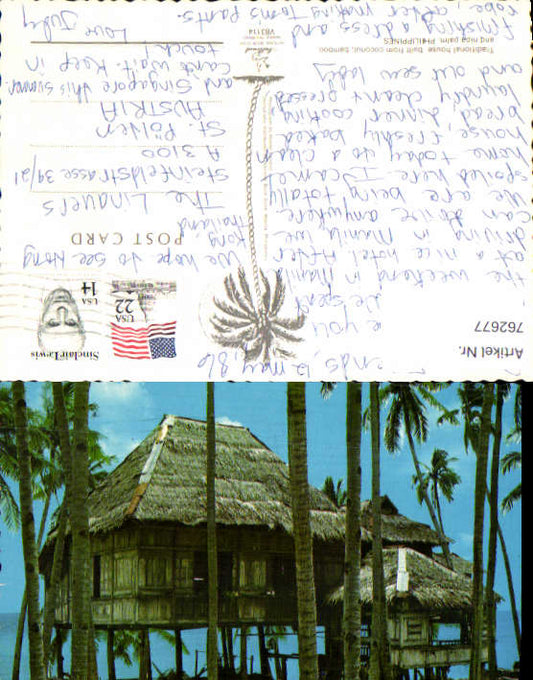 ends, 12 may, 86
e you
We spent
the weekend in Manila
at a nice hotel. After
driving in Manila we
can drive anywhere.
We are being totally
spoiled here. I came
home today to a clean
house, freshly baked
bread, dinner cooking,
laundry clean & pressed
and our sew lady
finishing a dress and
robe after mending Toms pants.
We hope to see Hong
Kong, Thailand
and Singapore this summer.
Can't wait. Keep in
touch!
Love Judy
The Linauers
Steinfeldstrasse 39/21
A 3100
St. Pölten
AUSTRIA
POST CARD
Artikel Nr.
762677
Sinclair Lewis
USA
14
USA
22
Traditional house built from coconut, bamboo
and nipa palm. PHILIPPINES
VB3114